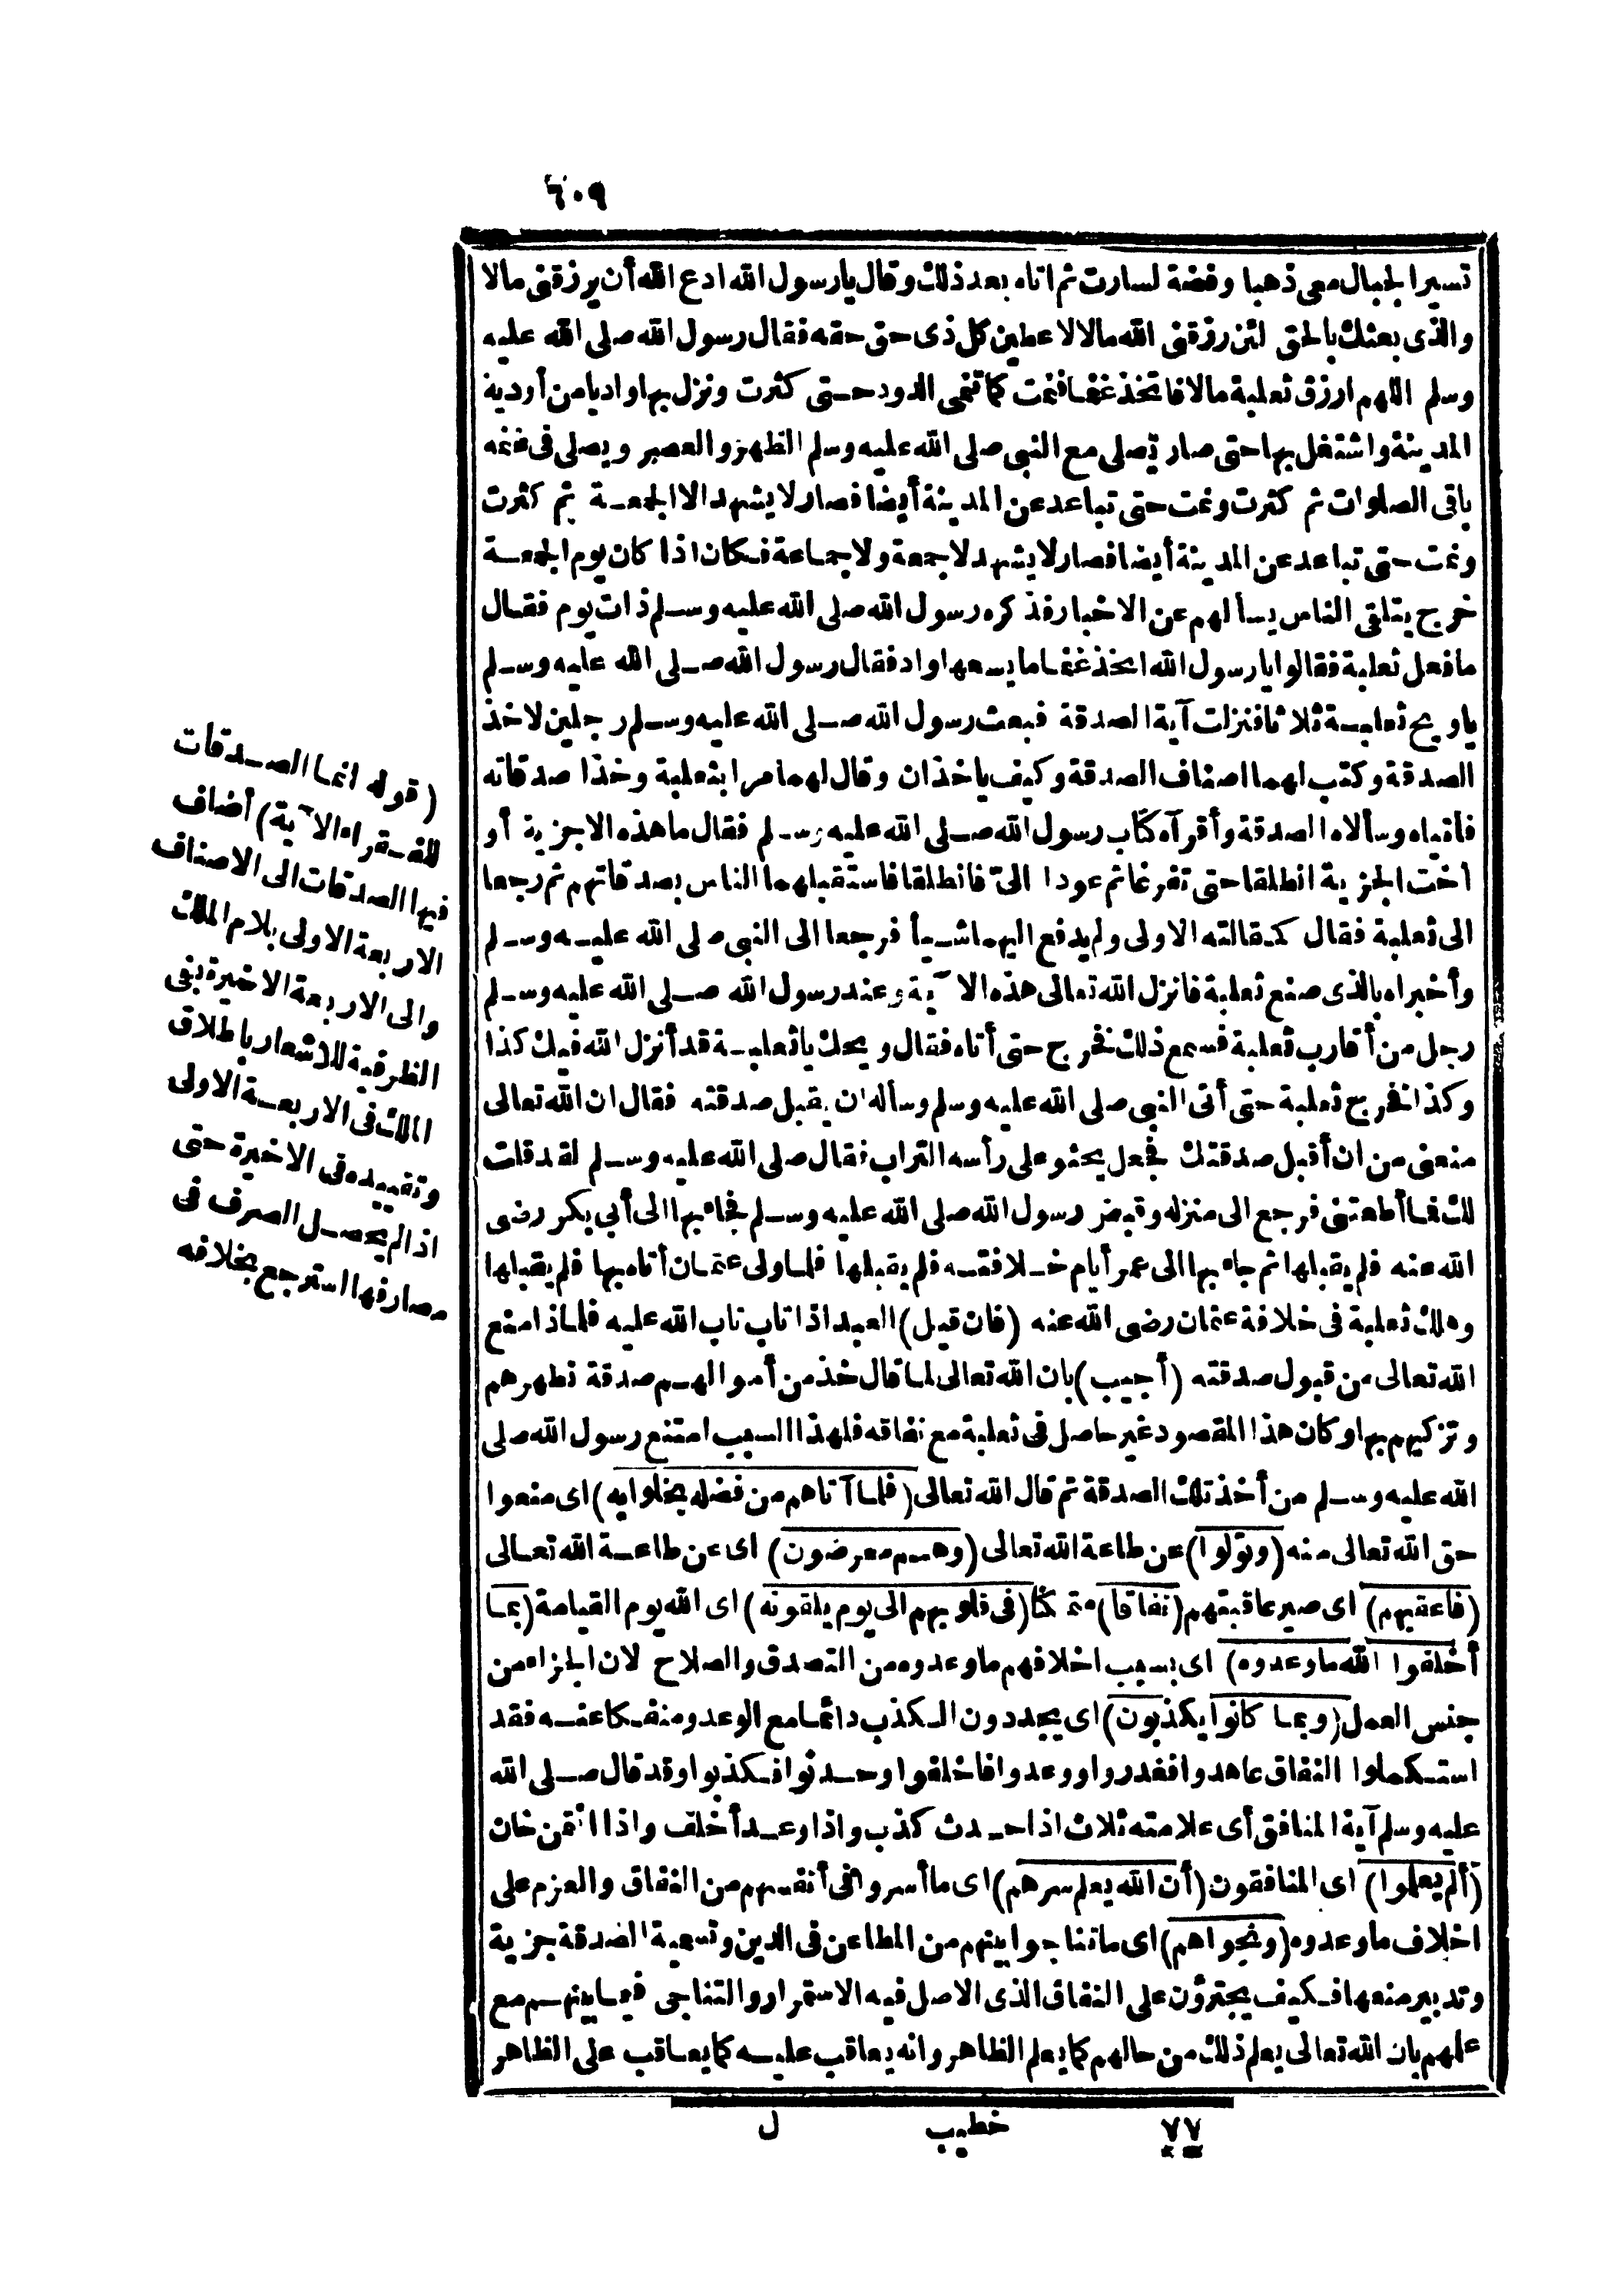 ٦٠٩
تسير الجبال معى ذهبا وفضة لسارت ثم اتاه بعد ذلك وقال يارسول الله ادع الله أن يرزقنى مالا
والذى بعثك بالحق لئن رزقنى الله مالا لاعطين كل ذى حق حقه فقال رسول الله صلى الله عليه
وسلم اللهم ارزق ثعلبة مالا فاتخذ غنما فنمت كما تنمى الدود حتى كثرت ونزل بها واديا من أودية
المدينة واشتغل بها حتى صار يصلى مع النبى صلى الله عليه وسلم الظهر والعصر ويصلى فى غنمه
باقى الصلوات ثم كثرت ونمت حتى تباعد عن المدينة أيضا فصار لا يشهد الا الجمعة ثم كثرت
ونمت حتى تباعد عن المدينة أيضا فصار لا يشهد لا جمعة ولا جماعة فكان اذا كان يوم الجمعة
خرج يتلقى الناس يسألهم عن الاخبار فذكره رسول الله صلى الله عليه وسلم ذات يوم فقال
ما فعل ثعلبة فقالوا يارسول الله اتخذ غنما ما يسعها واد فقال رسول الله صلى الله عليه وسلم
ياويح ثعلبة ثلاثا فنزلت آية الصدقة فبعث رسول الله صلى الله عليه وسلم رجلين لاخذ
الصدقة وكتب لهما اصناف الصدقة وكيف ياخذان وقال لهما مرا بثعلبة وخذا صدقاته
فأتياه وسألاه الصدقة وأقرآه كتاب رسول الله صلى الله عليه وسلم فقال ما هذه الاجزية أو
اخت الجزية انطلقا حتى تفرغا ثم عودا الىّ فانطلقا فاستقبلهما الناس بصدقاتهم ثم رجعا
الى ثعلبة فقال كمقالته الاولى ولم يدفع اليهما شيأ فرجعا الى النبى صلى الله عليه وسلم
وأخبراه بالذى صنع ثعلبة فانزل الله تعالى هذه الآية وعند رسول الله صلى الله عليه وسلم
رجل من أقارب ثعلبة فسمع ذلك فخرج حتى أتاه فقال ويحك ياثعلبة قد أنزل الله فيك كذا
وكذا فخرج ثعلبة حتى أتى النبى صلى الله عليه وسلم وسأله ان يقبل صدقته فقال ان الله تعالى
منعنى من ان أقبل صدقتك فجعل يحثو على رأسه التراب فقال صلى الله عليه وسلم لقد قلت
لك فما أطعتنى فرجع الى منزله وقبض رسول الله صلى الله عليه وسلم فجاء بها الى أبى بكر رضى
الله عنه فلم يقبلها ثم جاء بها الى عمر أيام خلافته فلم يقبلها فلما ولى عثمان أتاه بها فلم يقبلها
وهلك ثعلبة فى خلافة عثمان رضى الله عنه (فان قيل) العبد اذا تاب تاب الله عليه فلماذا منع
الله تعالى من قبول صدقته (أجيب) بان الله تعالى لما قال خذ من أموالهم صدقة تطهرهم
وتزكيهم بها وكان هذا المقصود غير حاصل فى ثعلبة مع نفاقه فلهذا السبب امتنع رسول الله صلى
الله عليه وسلم من أخذ تلك الصدقة ثم قال الله تعالى (فلما آتاهم من فضله بخلوا به) اى منعوا
حق الله تعالى منه (وتولوا) عن طاعة الله تعالى (وهم معرضون) اى عن طاعة الله تعالى
(فاعقبهم) اى صير عاقبتهم (نفاقا) متمكنا (فى قلوبهم الى يوم يلقونه) اى الله يوم القيامة (بما
أخلفوا الله ما وعدوه) اى بسبب اخلافهم ما وعدوه من التصدق والصلاح لان الجزاء من
جنس العمل (وبما كانوا يكذبون) اى يجددون الكذب دائما مع الوعد ومنفكا عنه فقد
استكملوا النفاق عاهدوا فغدروا ووعدوا فاخلفوا وحدثوا فكذبوا وقد قال صلى الله
عليه وسلم آية المنافق أى علامته ثلاث اذا حدث كذب واذا وعد أخلف واذا ائتمن خان
(ألم يعلموا) اى المنافقون (أن الله يعلم سرهم) اى ما أسروا فى أنفسهم من النفاق والعزم على
اخلاف ما وعدوه (ونجواهم) اى ما تناجوا بينهم من المطاعن فى الدين وتسمية الصدقة جزية
وتدبير منعها فكيف يجترؤن على النفاق الذى الاصل فيه الاستمرار والتناجى فيما بينهم مع
علمهم بان الله تعالى يعلم ذلك من حالهم كما يعلم الظاهر وانه يعاقب عليه كما يعاقب على الظاهر
(قوله انما الصدقات
للفقراء الآية) أضاف
فيها الصدقات الى الاصناف
الاربعة الاولى بلام الملك
والى الاربعة الاخيرة بفى
الظرفية للاشعار باطلاق
الملك فى الاربعة الاولى
وتقييده فى الاخيرة حتى
اذا لم يحصل الصرف فى
مصارفها استرجع بخلافه
٧٧ خطيب ل